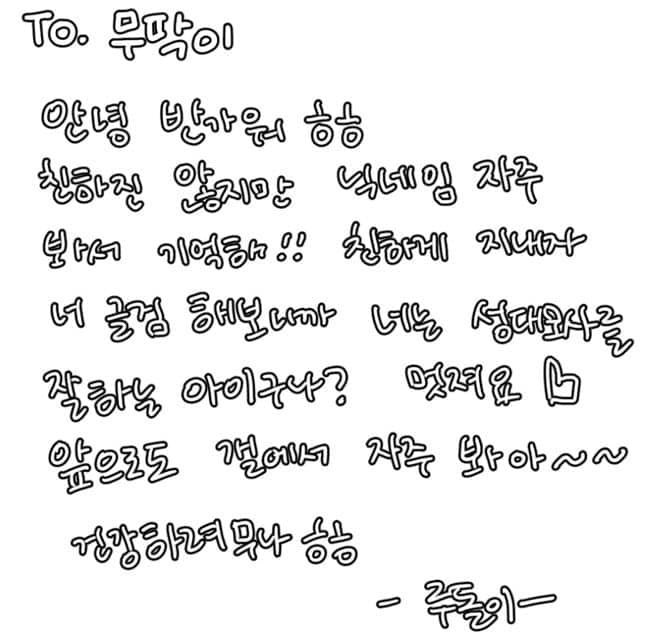 To. 무딱이
안녕 반가워 흐흐
친하진 않지만 닉네임 자주
봐서 기억해!! 친하게 지내자
너 글검 해보니까 너는 성대묘사를
잘하는 아이구나? 멋져요
앞으로도 갤에서 자주 봐아~~
건강하려무나 흐흐
- 루돌이 -